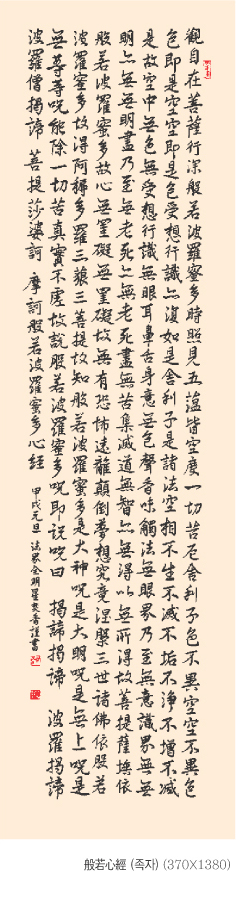 觀自在菩薩行深般若波羅蜜多時照見五蘊皆空度一切苦厄舍利子色不異空空不異色
色即是空空即是色受想行識亦復如是舍利子是諸法空相不生不滅不垢不淨不增不減
是故空中無色無受想行識無眼耳鼻舌身意無色聲香味觸法無眼界乃至無意識界無無
明亦無無明盡乃至無老死亦無老死盡無苦集滅道無智亦無得以無所得故菩提薩埵依
般若波羅蜜多故心無罣礙無罣礙故無有恐怖遠離顛倒夢想究竟涅槃三世諸佛依般若
波羅蜜多故得阿耨多羅三藐三菩提故知般若波羅蜜多是大神呪是大明呪是無上呪是
無等等呪能除一切苦真實不虛故說般若波羅蜜多呪即說呪曰 揭諦揭諦 波羅揭諦
波羅僧揭諦 菩提莎婆訶 摩訶般若波羅蜜多心経
甲戌元旦 法界金明星焚香謹書
般若心經 (족자) (370X1380)